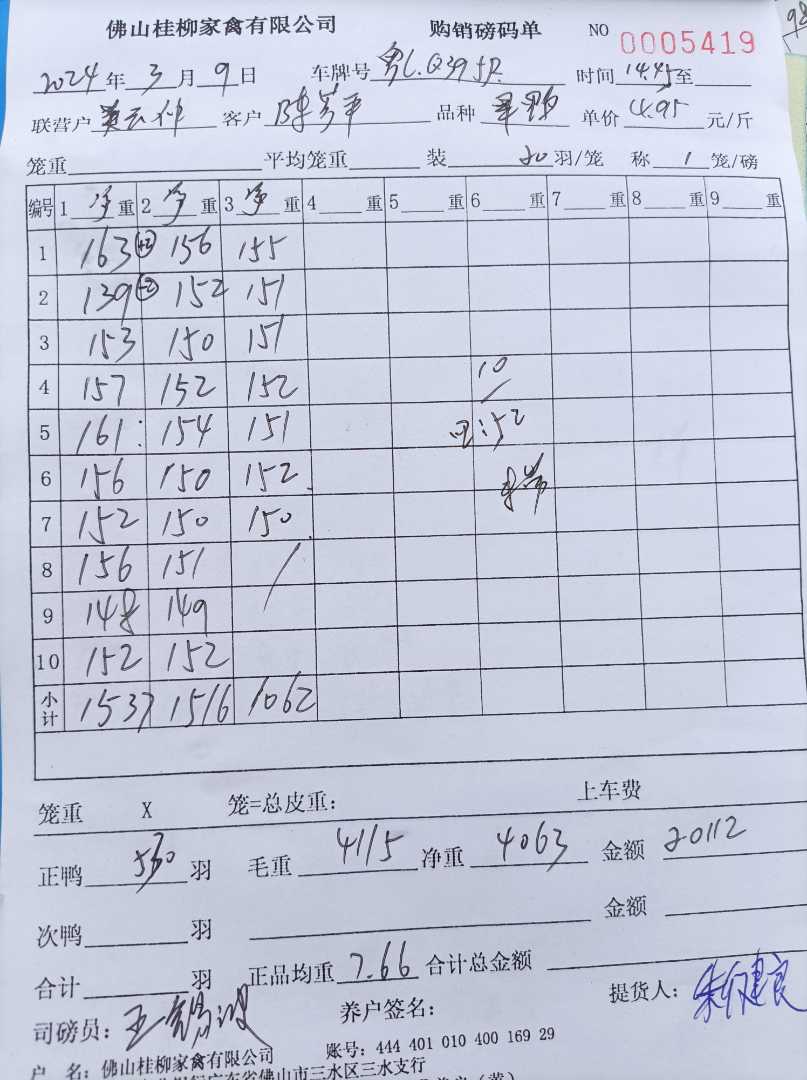 佛山桂柳家禽有限公司 购销磅码单 NO 0005419
2024年3月9日 车牌号 时间 14.45 至
联营户 客户 陈 平 品种 单价 4.95 元/斤
笼重 平均笼重 装 20 羽/笼 称 1 笼/磅
编号 1 净 重 2 净 重 3 净 重 4 重 5 重 6 重 7 重 8 重 9 重
1 163 +2 156 155
2 139 -2 152 151
3 153 150 151
4 157 152 152 10
5 161 154 151 :52
6 156 150 152
7 152 150 150
8 156 151 /
9 148 149
10 152 152
小计 1537 1516 1062
笼重 X 笼=总皮重: 上车费
正鸭 530 羽 毛重 4115 净重 4063 金额 20112
次鸭 羽 金额
合计 羽 正品均重 7.66 合计总金额
司磅员: 养户签名: 提货人:
户 名: 佛山桂柳家禽有限公司 账号: 444 401 010 400 169 29
广东省佛山市三水区三水支行